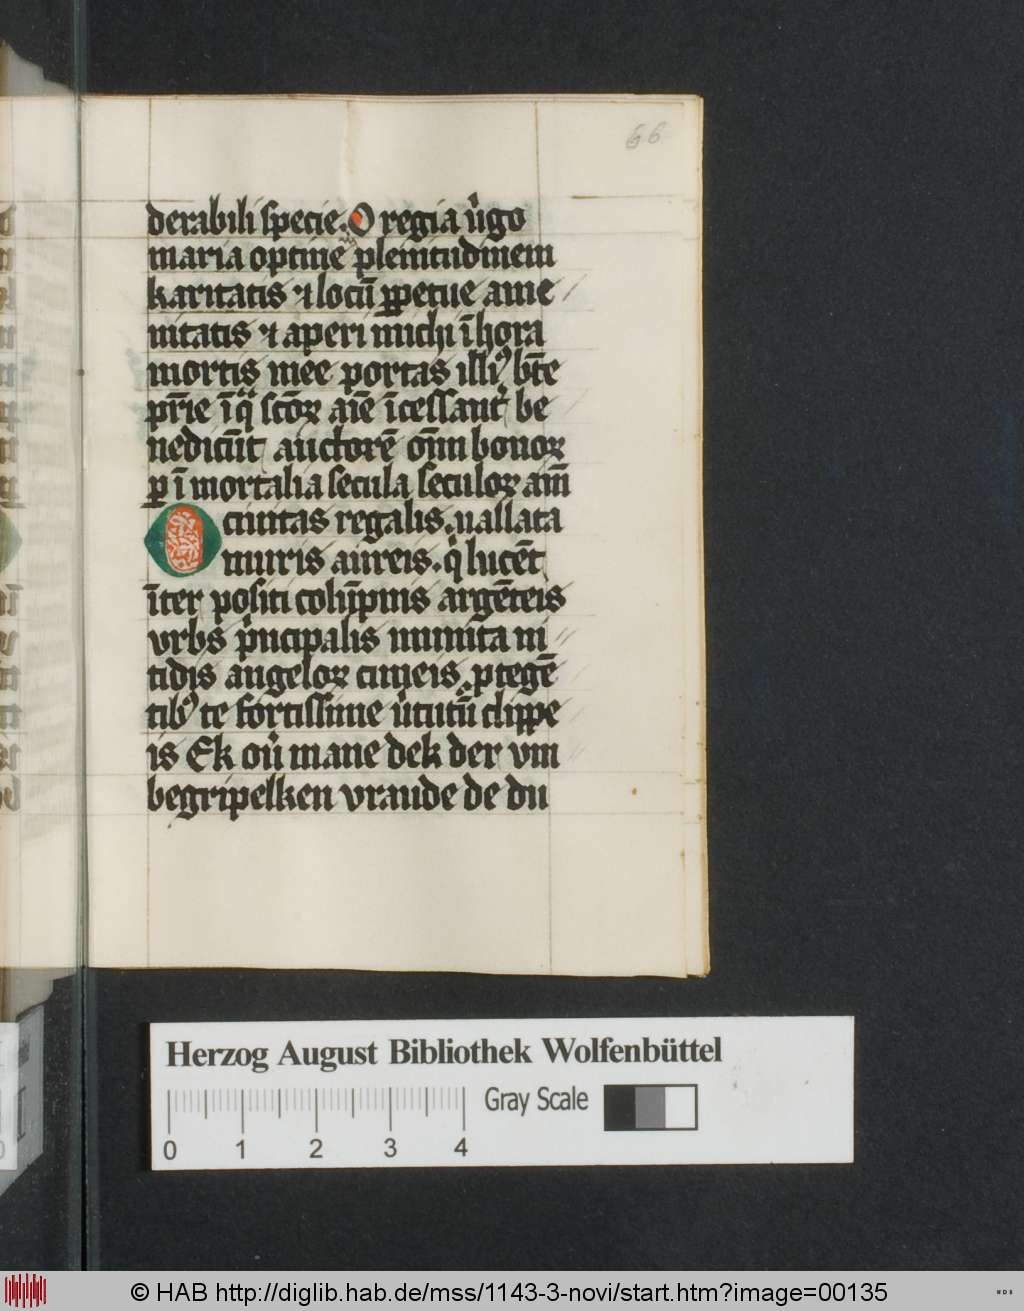 66
derabili specie. O regia v̉go
maria optine plenitudinem
karitatis ⁊ locū ꝑpetue ame
nitatis ⁊ aperi michi ī hora
mortis mee portas illiꝰ bt̄e
pr̄ie ī q̄ sctōꝝ aīe īcessant᷑ be
nedicūt auctorē om̄ī bonoꝝ
ꝑ īmortalia secula seculoꝝ am̄
O ciuitas regalis. uallata
muris aureis. q̉ lucēt
īter positi colūpnis argēteis
vrbs pͥncipalis munita ni
tidis angeloꝝ cuneis. ꝓtegē
tibꝰ te fortissime v̉tutū clippe
is Ek oủ mane dek der vm
begripelken vraude de du
Herzog August Bibliothek Wolfenbüttel
Gray Scale
0 1 2 3 4
© HAB http://diglib.hab.de/mss/1143-3-novi/start.htm?image=00135